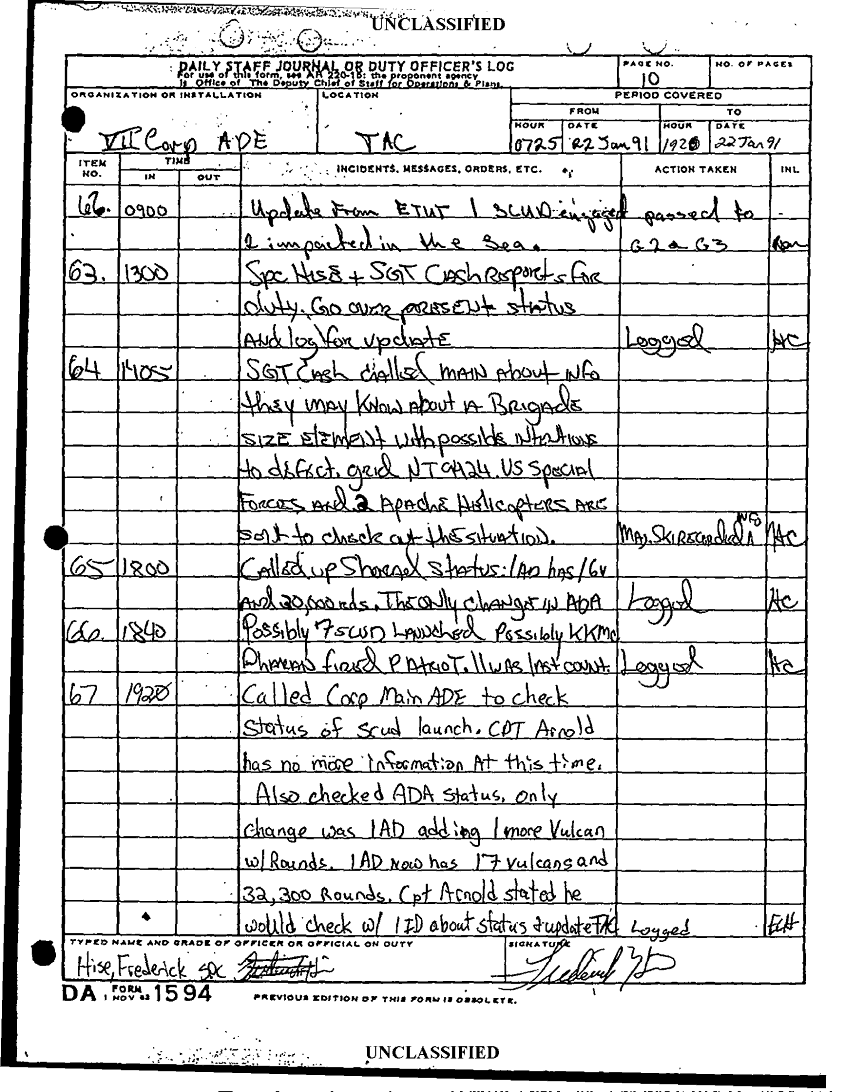 UNCLASSIFIED
DAILY STAFF JOURNAL OR DUTY OFFICER'S LOG
For use of this form, see AR 220-15; the proponent agency
is Office of The Deputy Chief of Staff for Operations & Plans.
PAGE NO.
10
NO. OF PAGES
ORGANIZATION OR INSTALLATION
VII Corp ADE
LOCATION
TAC
PERIOD COVERED
FROM
TO
HOUR DATE HOUR DATE
0725 22 Jan 91 1920 22 Jan 91
ITEM NO.
TIME
IN OUT
INCIDENTS, MESSAGES, ORDERS, ETC.
ACTION TAKEN
INL
62. 0900 Update From ETUT 1 SCUD engaged passed to
2 impacted in the Sea. G2 & G3
63. 1300 Spc Hise + SGT Cash Reports for
duty. Go over present status
And log for update Logged HC
64 1405 SGT Cash called MAIN About INFO
they may Know About A Brigade
SIZE Element with possible intentions
to defect. grid NT9424. US Special
Forces And 2 Apache Helicopters ARE
sent to check out the situation. INFO HC
65 1800 Called up Shorad status: 1AD has 16v
And 30,000 rds. The only change in ADA Logged HC
66. 1840 Possibly 7 SCUD Launched Possibly KKMC
Dhahran fired PATRIOT. 11 was last count. Logged HC
67 1920 Called Corp Main ADE to check
Status of scud launch. CPT Arnold
has no more information At this time.
Also checked ADA status, only
change was 1AD adding 1 more Vulcan
w/Rounds. 1AD now has 17 vulcans and
32,300 Rounds. Cpt Arnold stated he
would check w/ 1ID about status & update TAC Logged FH
TYPED NAME AND GRADE OF OFFICER OR OFFICIAL ON DUTY
Hise, Frederick SPC
SIGNATURE
DA FORM 1 NOV 62 1594
PREVIOUS EDITION OF THIS FORM IS OBSOLETE.
UNCLASSIFIED